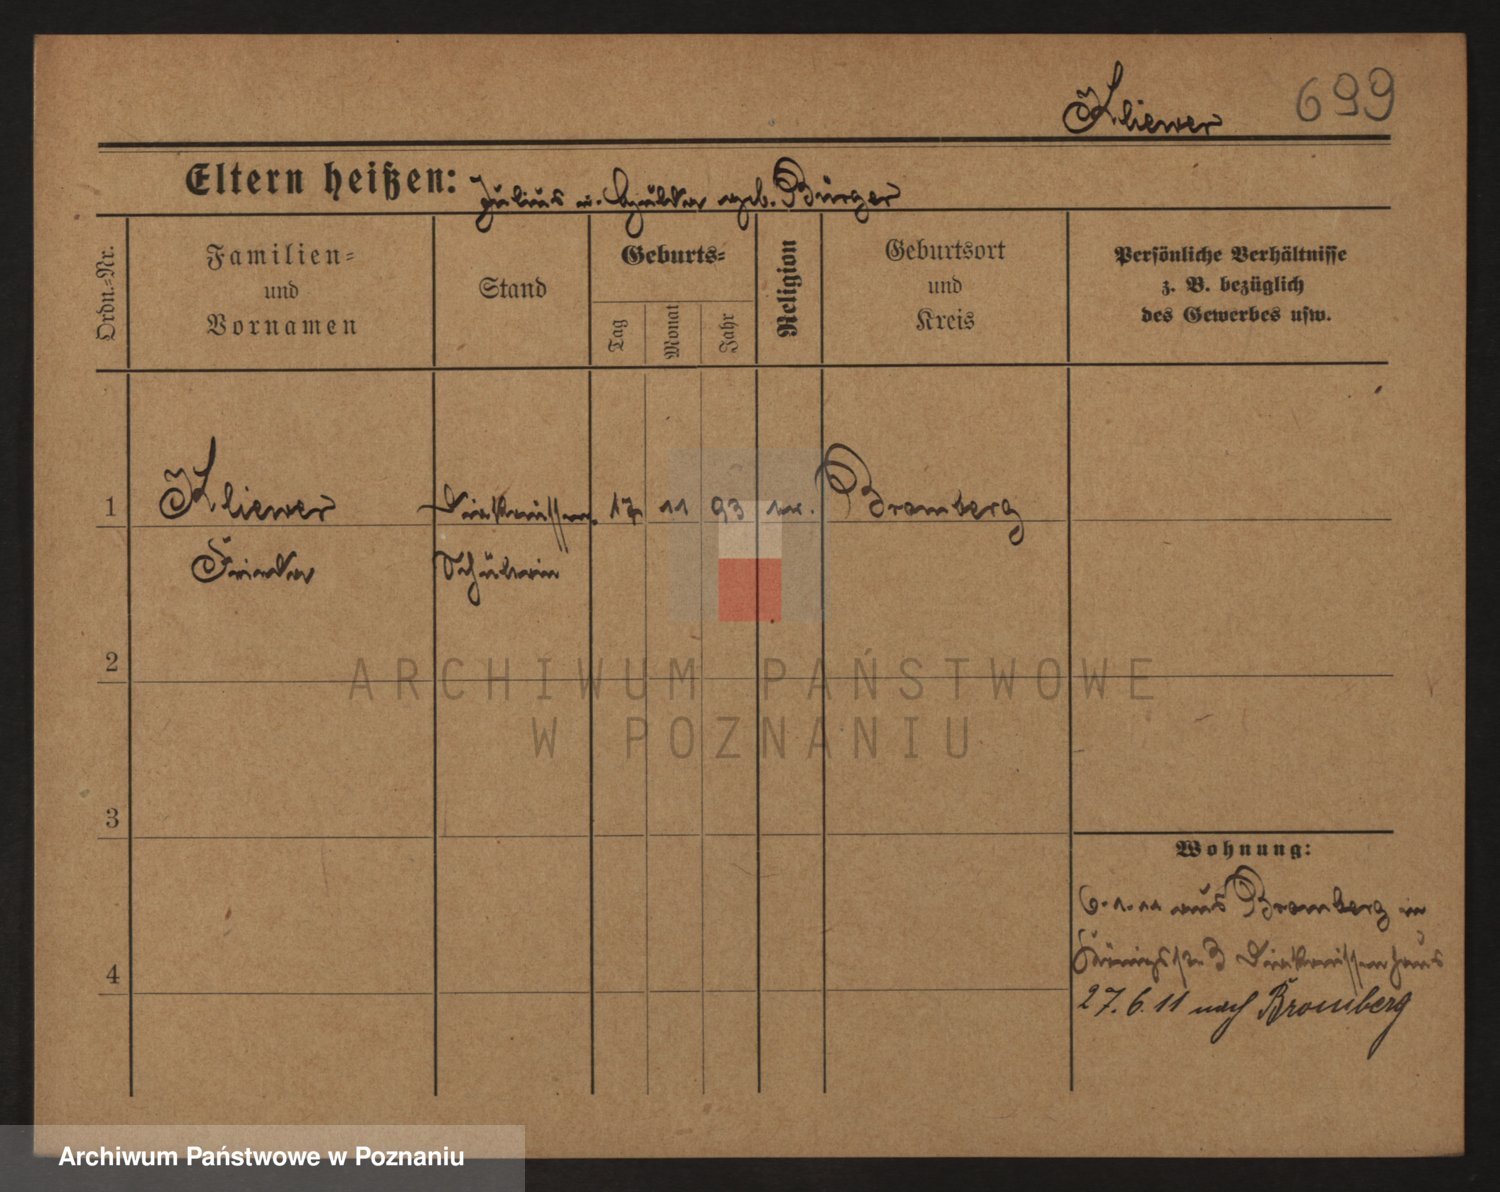 Kliewer 699
Eltern heißen: Julius u. Hulda geb. Bürger
Ordn.-Nr.
Familien-
und
Vornamen
Stand
Geburts-
Tag
Monat
Jahr
Religion
Geburtsort
und
Kreis
Persönliche Verhältnisse
z. B. bezüglich
des Gewerbes usw.
1 Kliewer Diakonissen. 17 11 93 ev. Bromberg
Frieda Schülerin
2
3
4
Wohnung:
6.1.11 aus Bromberg in
Königstr 3 Diakonissenhaus
27.6.11 nach Bromberg
ARCHIWUM PAŃSTWOWE
W POZNANIU
Archiwum Państwowe w Poznaniu